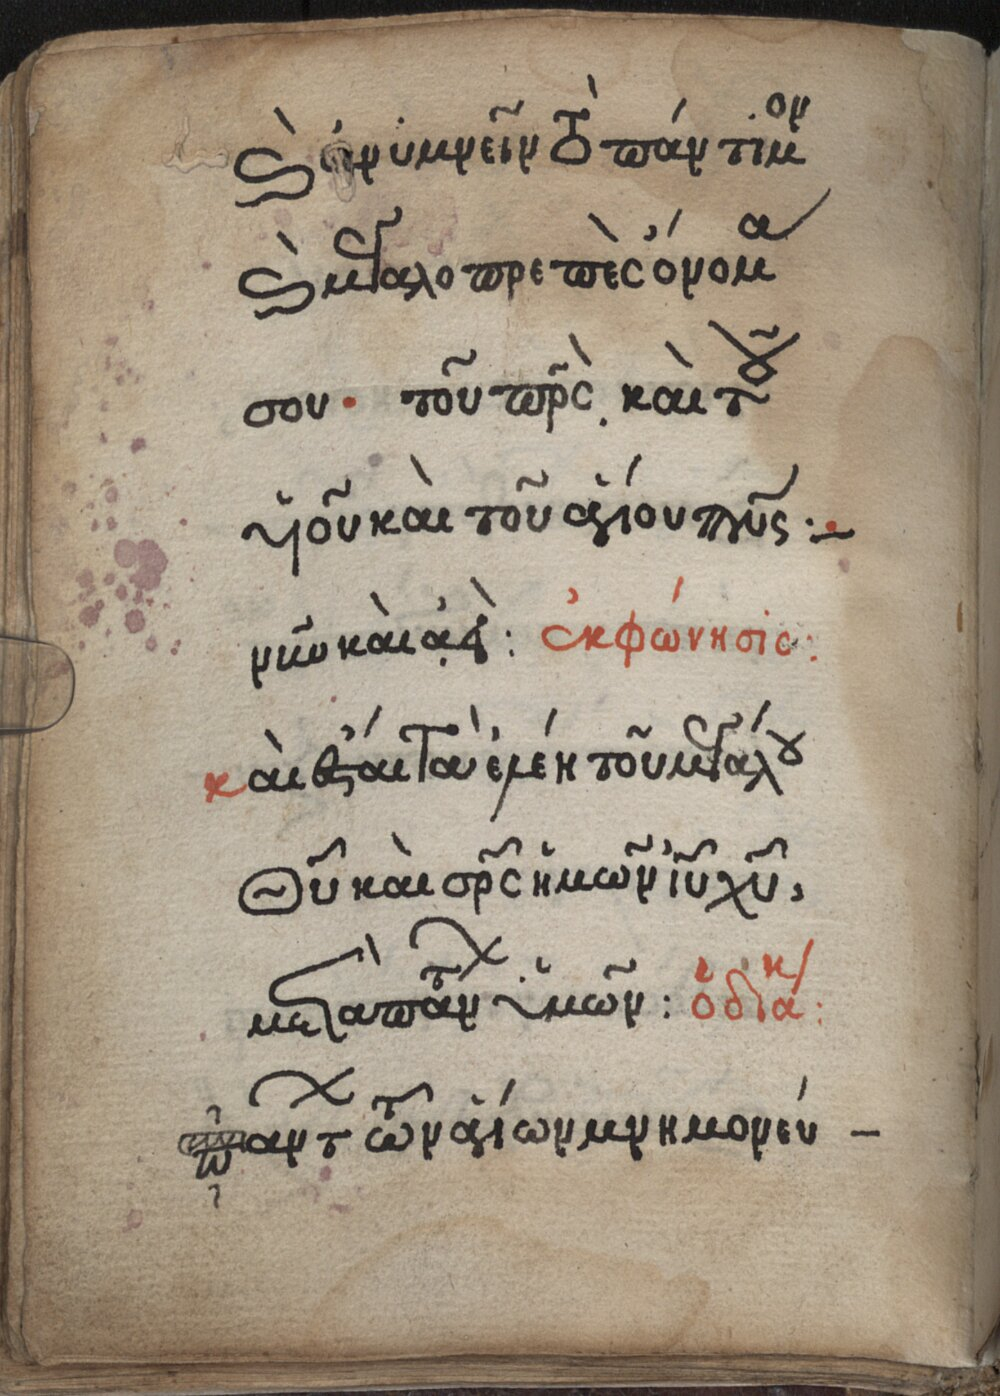 καὶ ἀνυμνεῖν τὸ πάντιμον
καὶ μεγαλοπρεπὲς ὄνομα
σου· τοῦ πρς̀ καὶ τοῦ
υἱοῦ καὶ τοῦ ἁγίου πνς:–
νῦν καὶ ἀεὶ: ἐκφώνησις:
καὶ ἔσται τὰ ἐλέη τοῦ μεγάλου
Θῦ καὶ σρς ἡμῶν ἰῦ χῦ,
μετὰ πάντων ὑμῶν: ὁ διάκ:
πάντων τῶν ἁγίων μνημονεύ –